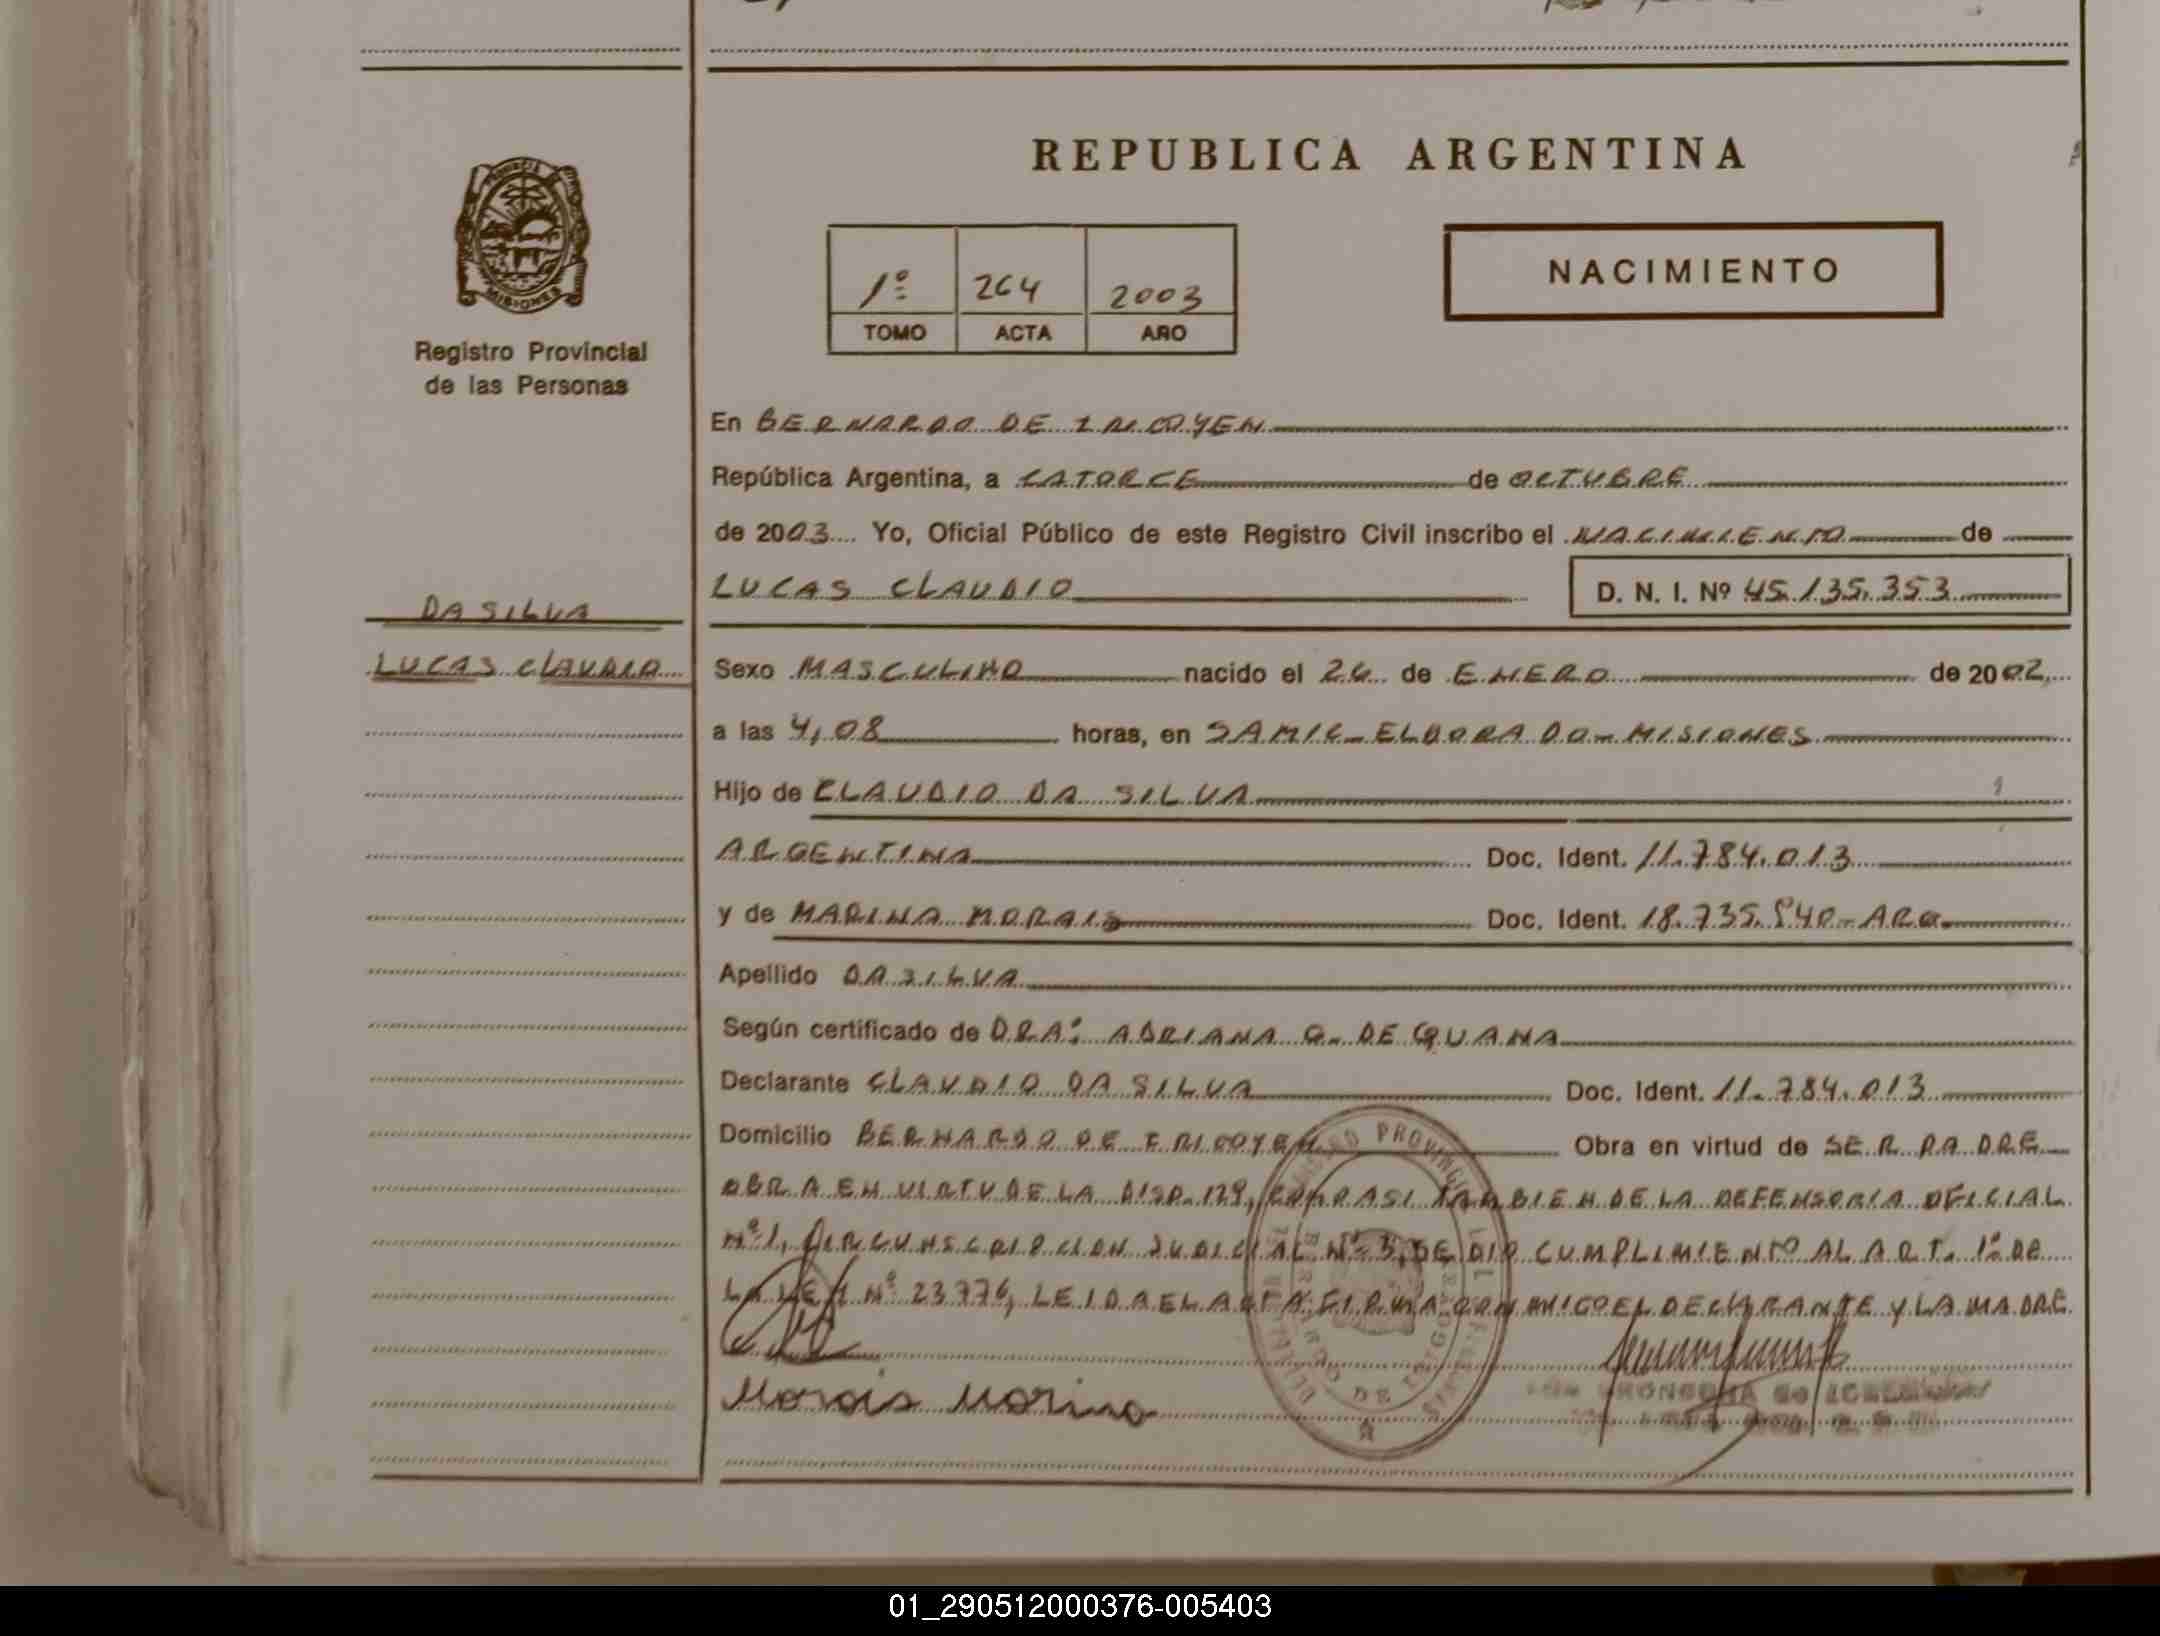 REPUBLICA ARGENTINA
PROVINCIA
MISIONES
Registro Provincial
de las Personas
1º 264 2003
TOMO ACTA AÑO
NACIMIENTO
En BERNARDO DE IRIGOYEN
República Argentina, a CATORCE de OCTUBRE
de 2003 Yo, Oficial Público de este Registro Civil inscribo el NACIMIENTO de
LUCAS CLAUDIO D. N. I. Nº 45.135.353
DA SILVA
LUCAS CLAUDIO
Sexo MASCULINO nacido el 26 de ENERO de 2002,
a las 4,08 horas, en SAMIC - ELDORADO - MISIONES
Hijo de CLAUDIO DA SILVA
ARGENTINA Doc. Ident. 11.784.013
y de MARINA MORAIS Doc. Ident. 18.735.540 - ARG.
Apellido DA SILVA
Según certificado de DRA: ADRIANA G. DE GUANA
Declarante CLAUDIO DA SILVA Doc. Ident. 11.784.013
Domicilio BERNARDO DE IRIGOYEN Obra en virtud de SER PADRE
OBRA EN VIRTU DE LA DISP. 129, COMO ASI TAMBIEN DE LA DEFENSORIA OFICIAL
Nº 1, CIRCUNSCRIPCION JUDICIAL Nº 3, SE DIO CUMPLIMIENTO AL ART. 1º DE
LA LEY Nº 23776, LEIDA EL ACTA FIRMA CONMIGO EL DECLARANTE Y LA MADRE
Morais Marina
01_290512000376-005403